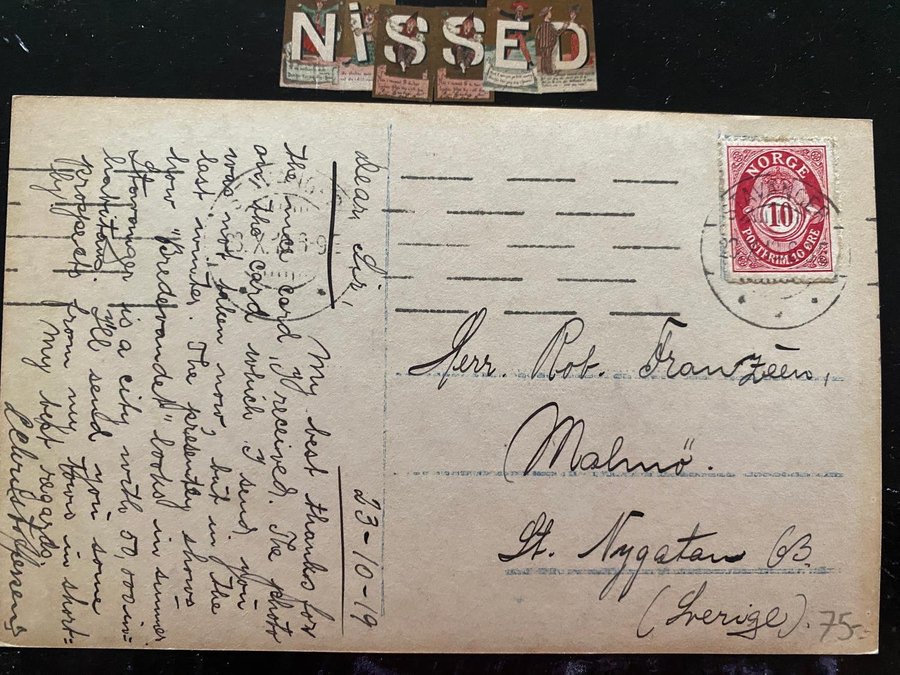 NISSED
NORGE
10
POSTFRIM. 10 ØRE
23-10-19
Dear Sir,
My best thanks for
the nice card y received. The photo
on the card which y send you
was not taken now, but in the
last winter. The presently shows
how "Bredevandet" looks in summer.
Stavanger is a city with 50 000 in-
habitans. Y'll send you some
prospects from my town in short-
ly! My best regards,
Christoffersen
Herr. Rob. Franzéen,
Malmö.
St. Nygatan 6B
(Sverige).
75-